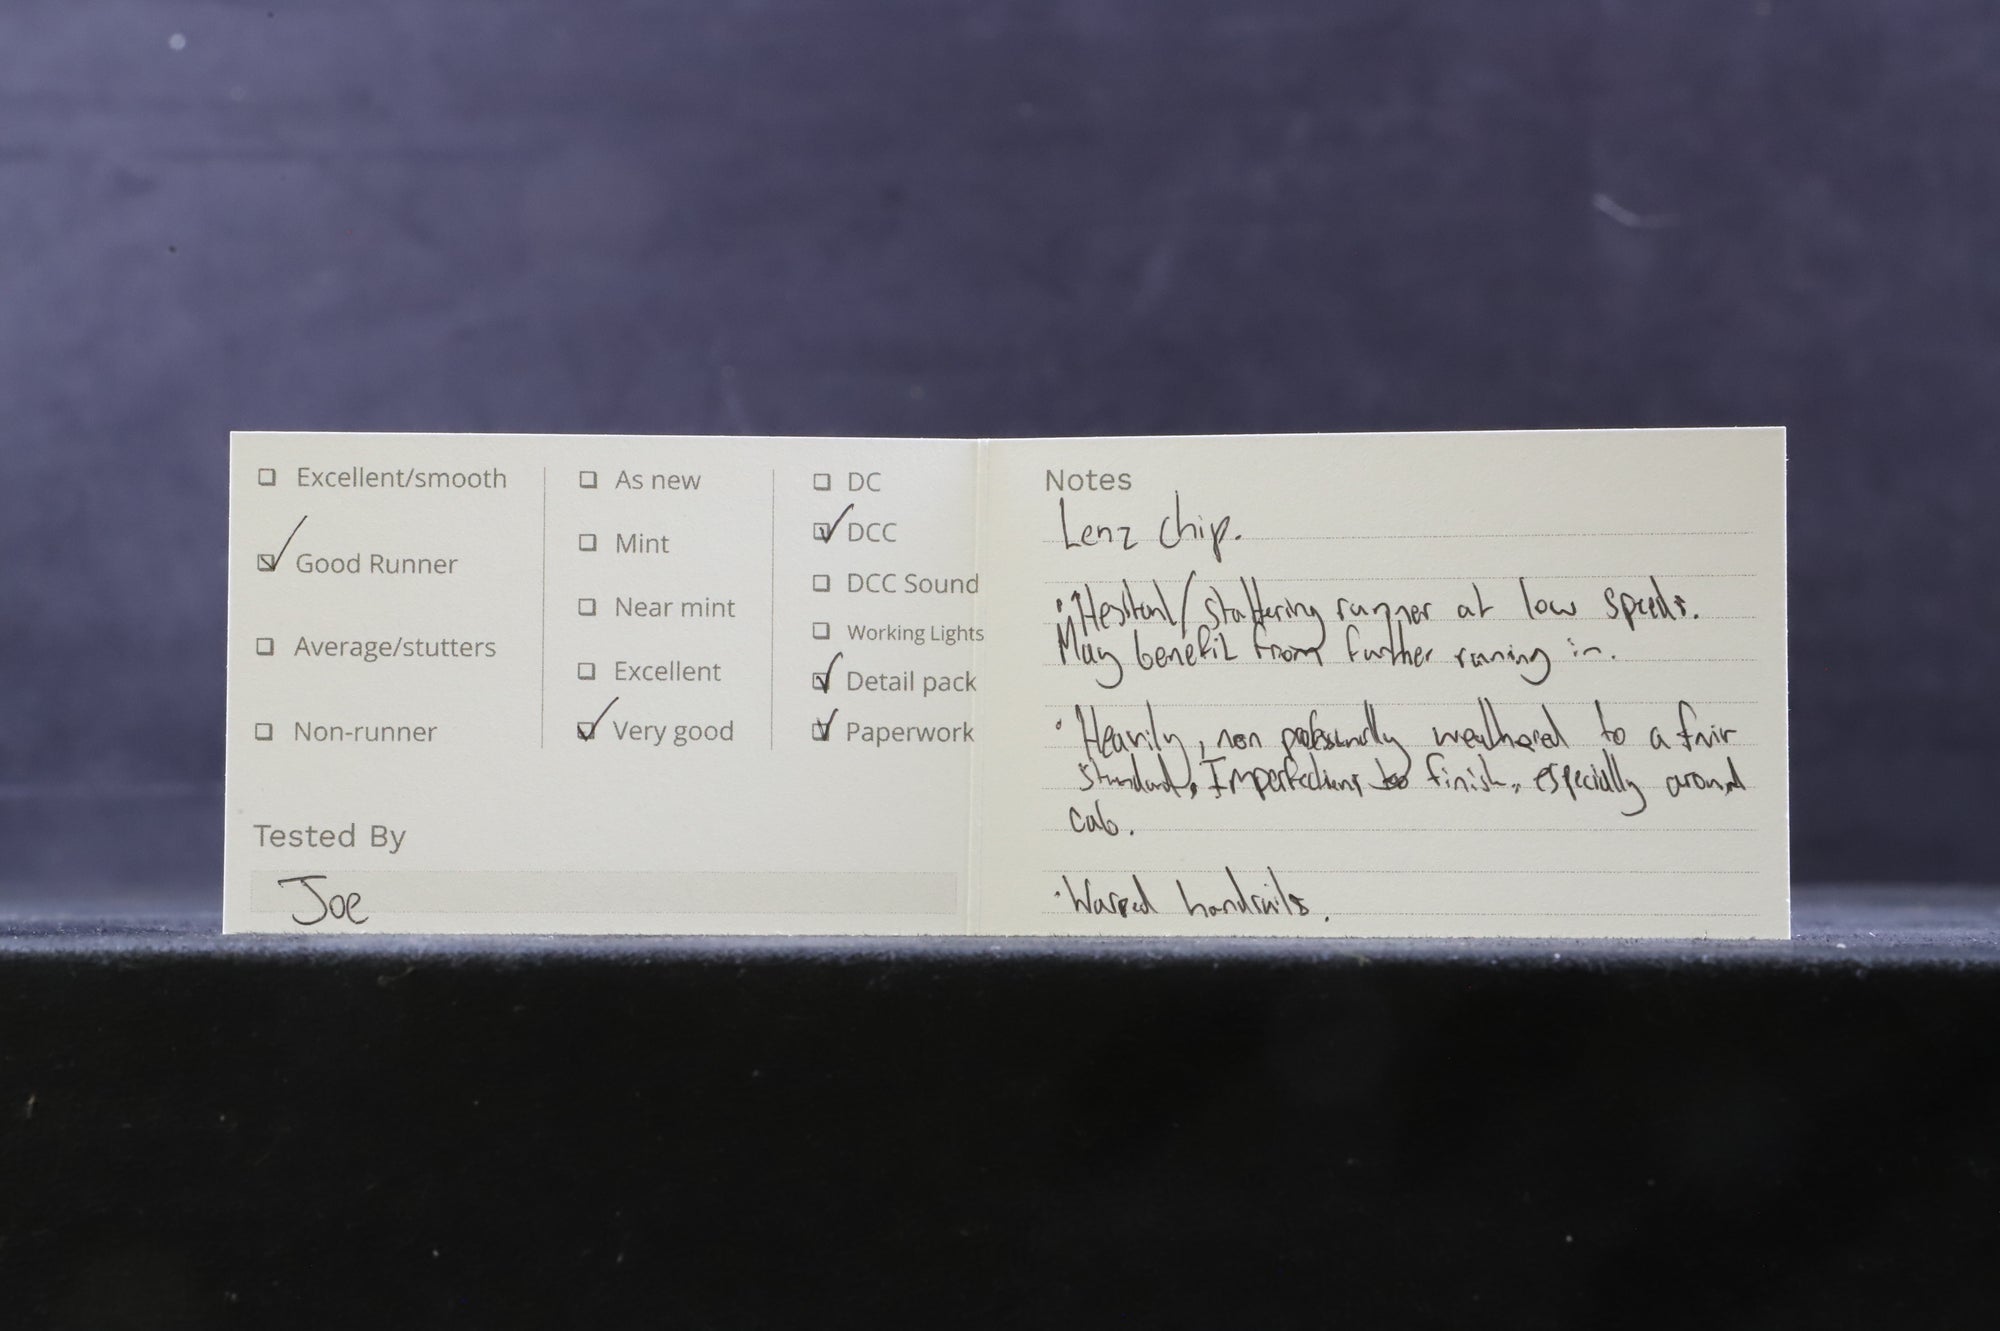 Excellent/smooth
Good Runner
Average/stutters
Non-runner
As new
Mint
Near mint
Excellent
Very good
DC
DCC
DCC Sound
Working Lights
Detail pack
Paperwork
Tested By
Joe
Notes
Lenz chip.
• Hesitant/stuttering runner at low speeds.
May benefit from further running in.
• Heavily, non professionally weathered to a fair
standard, Imperfections to finish, especially around
cab.
• Warped handrails.